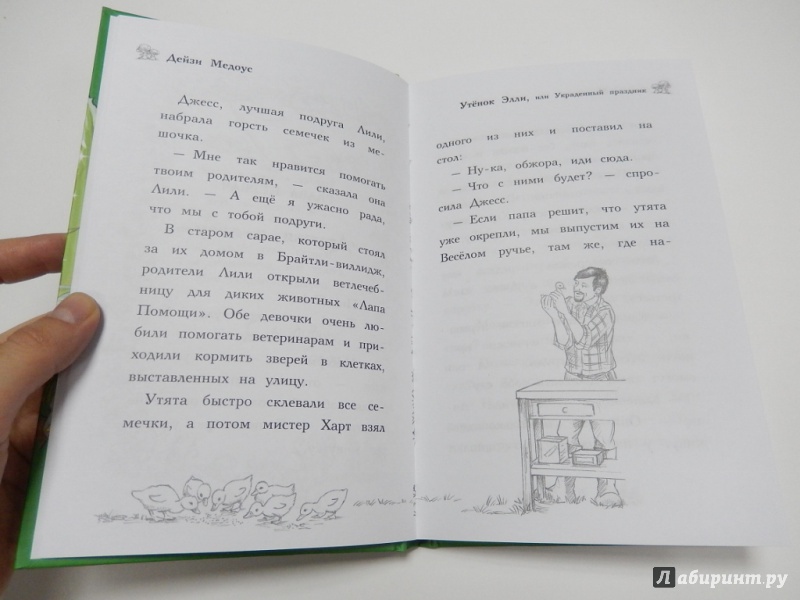 Дейзи Медоус
Джесс, лучшая подруга Лили,
набрала горсть семечек из ме-
шочка.
— Мне так нравится помогать
твоим родителям, — сказала она
Лили. — А ещё я ужасно рада,
что мы с тобой подруги.
В старом сарае, который стоял
за их домом в Брайтли-виллидж,
родители Лили открыли ветлечеб-
ницу для диких животных «Лапа
Помощи». Обе девочки очень лю-
били помогать ветеринарам и при-
ходили кормить зверей в клетках,
выставленных на улицу.
Утята быстро склевали все се-
мечки, а потом мистер Харт взял
Утёнок Элли, или Украденный праздник
одного из них и поставил на
стол:
— Ну-ка, обжора, иди сюда.
— Что с ними будет? — спро-
сила Джесс.
— Если папа решит, что утята
уже окрепли, мы выпустим их на
Весёлом ручье, там же, где на-
Лабиринт.ру